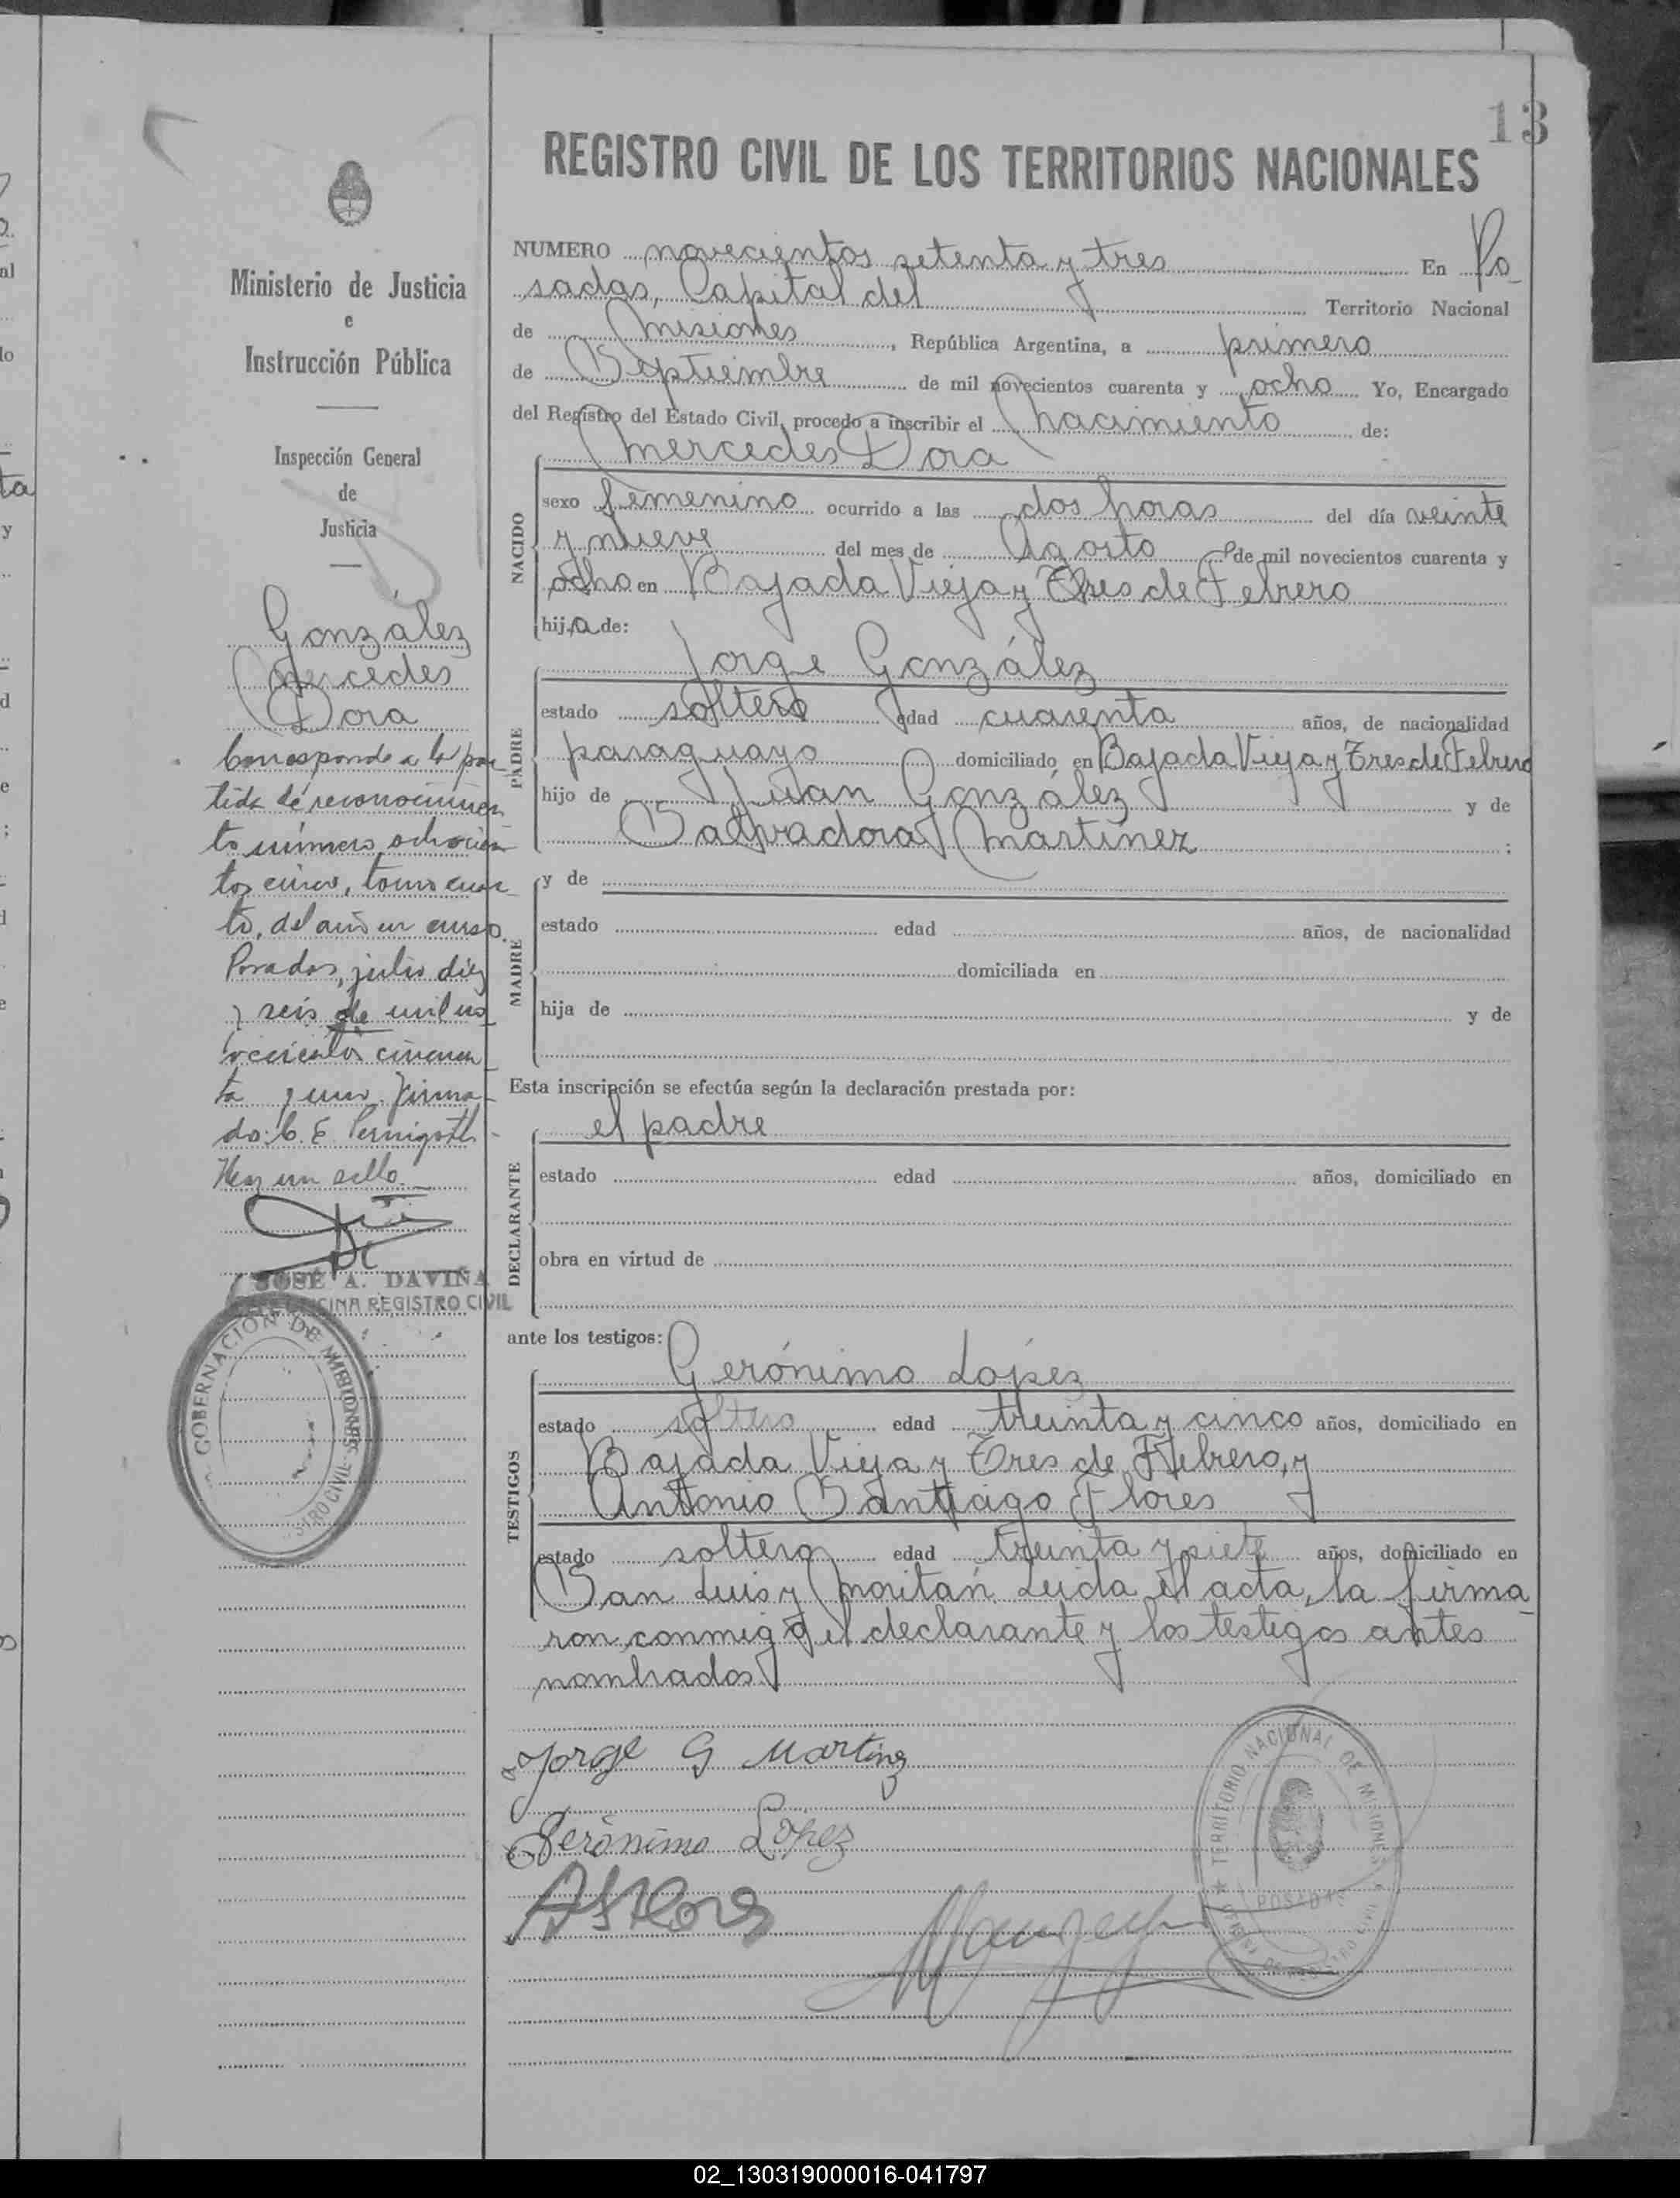 13
REGISTRO CIVIL DE LOS TERRITORIOS NACIONALES
Ministerio de Justicia
e
Instrucción Pública
Inspección General
de
Justicia
González
Mercedes
Dora
Corresponde a la par
tida de reconocimien
to número ochocien
tos cinco, tomo cuar
to, del año en curso.
Posadas, julio diez
y seis de mil no
vecientos cincuen
ta y uno. Firma
do: C. E. Pernigotti
Hay un sello.
JOSÉ A. DAVIÑA
OFICINA REGISTRO CIVIL
GOBERNACION DE MISIONES
REGISTRO CIVIL
NUMERO novecientos setenta y tres En Po
sadas, Capital del Territorio Nacional
de Misiones, República Argentina, a primero
de Septiembre de mil novecientos cuarenta y ocho Yo, Encargado
del Registro del Estado Civil, procedo a inscribir el nacimiento de:
Mercedes Dora
NACIDO
sexo femenino ocurrido a las dos horas del día veinte
y nueve del mes de Agosto de mil novecientos cuarenta y
ocho en Bajada Vieja y Tres de Febrero
hija de:
Jorge González
PADRE
estado soltero edad cuarenta años, de nacionalidad
paraguayo domiciliado en Bajada Vieja y Tres de Febrero
hijo de Juan González y de
Salvadora Martínez ;
y de
MADRE
estado edad años, de nacionalidad
domiciliada en
hija de y de
Esta inscripción se efectúa según la declaración prestada por:
el padre
DECLARANTE
estado edad años, domiciliado en
obra en virtud de
ante los testigos:
Gerónimo López
TESTIGOS
estado soltero edad treinta y cinco años, domiciliado en
Bajada Vieja y Tres de Febrero, y
Antonio Santiago Flores
estado soltero edad treinta y siete años, domiciliado en
San Luis y Moritán Leida el acta, la firma
ron conmigo el declarante y los testigos antes
nombrados.
Jorge G Martinez
Gerónimo López
ASFlores
TERRITORIO NACIONAL DE MISIONES
POSADAS
02_130319000016-041797